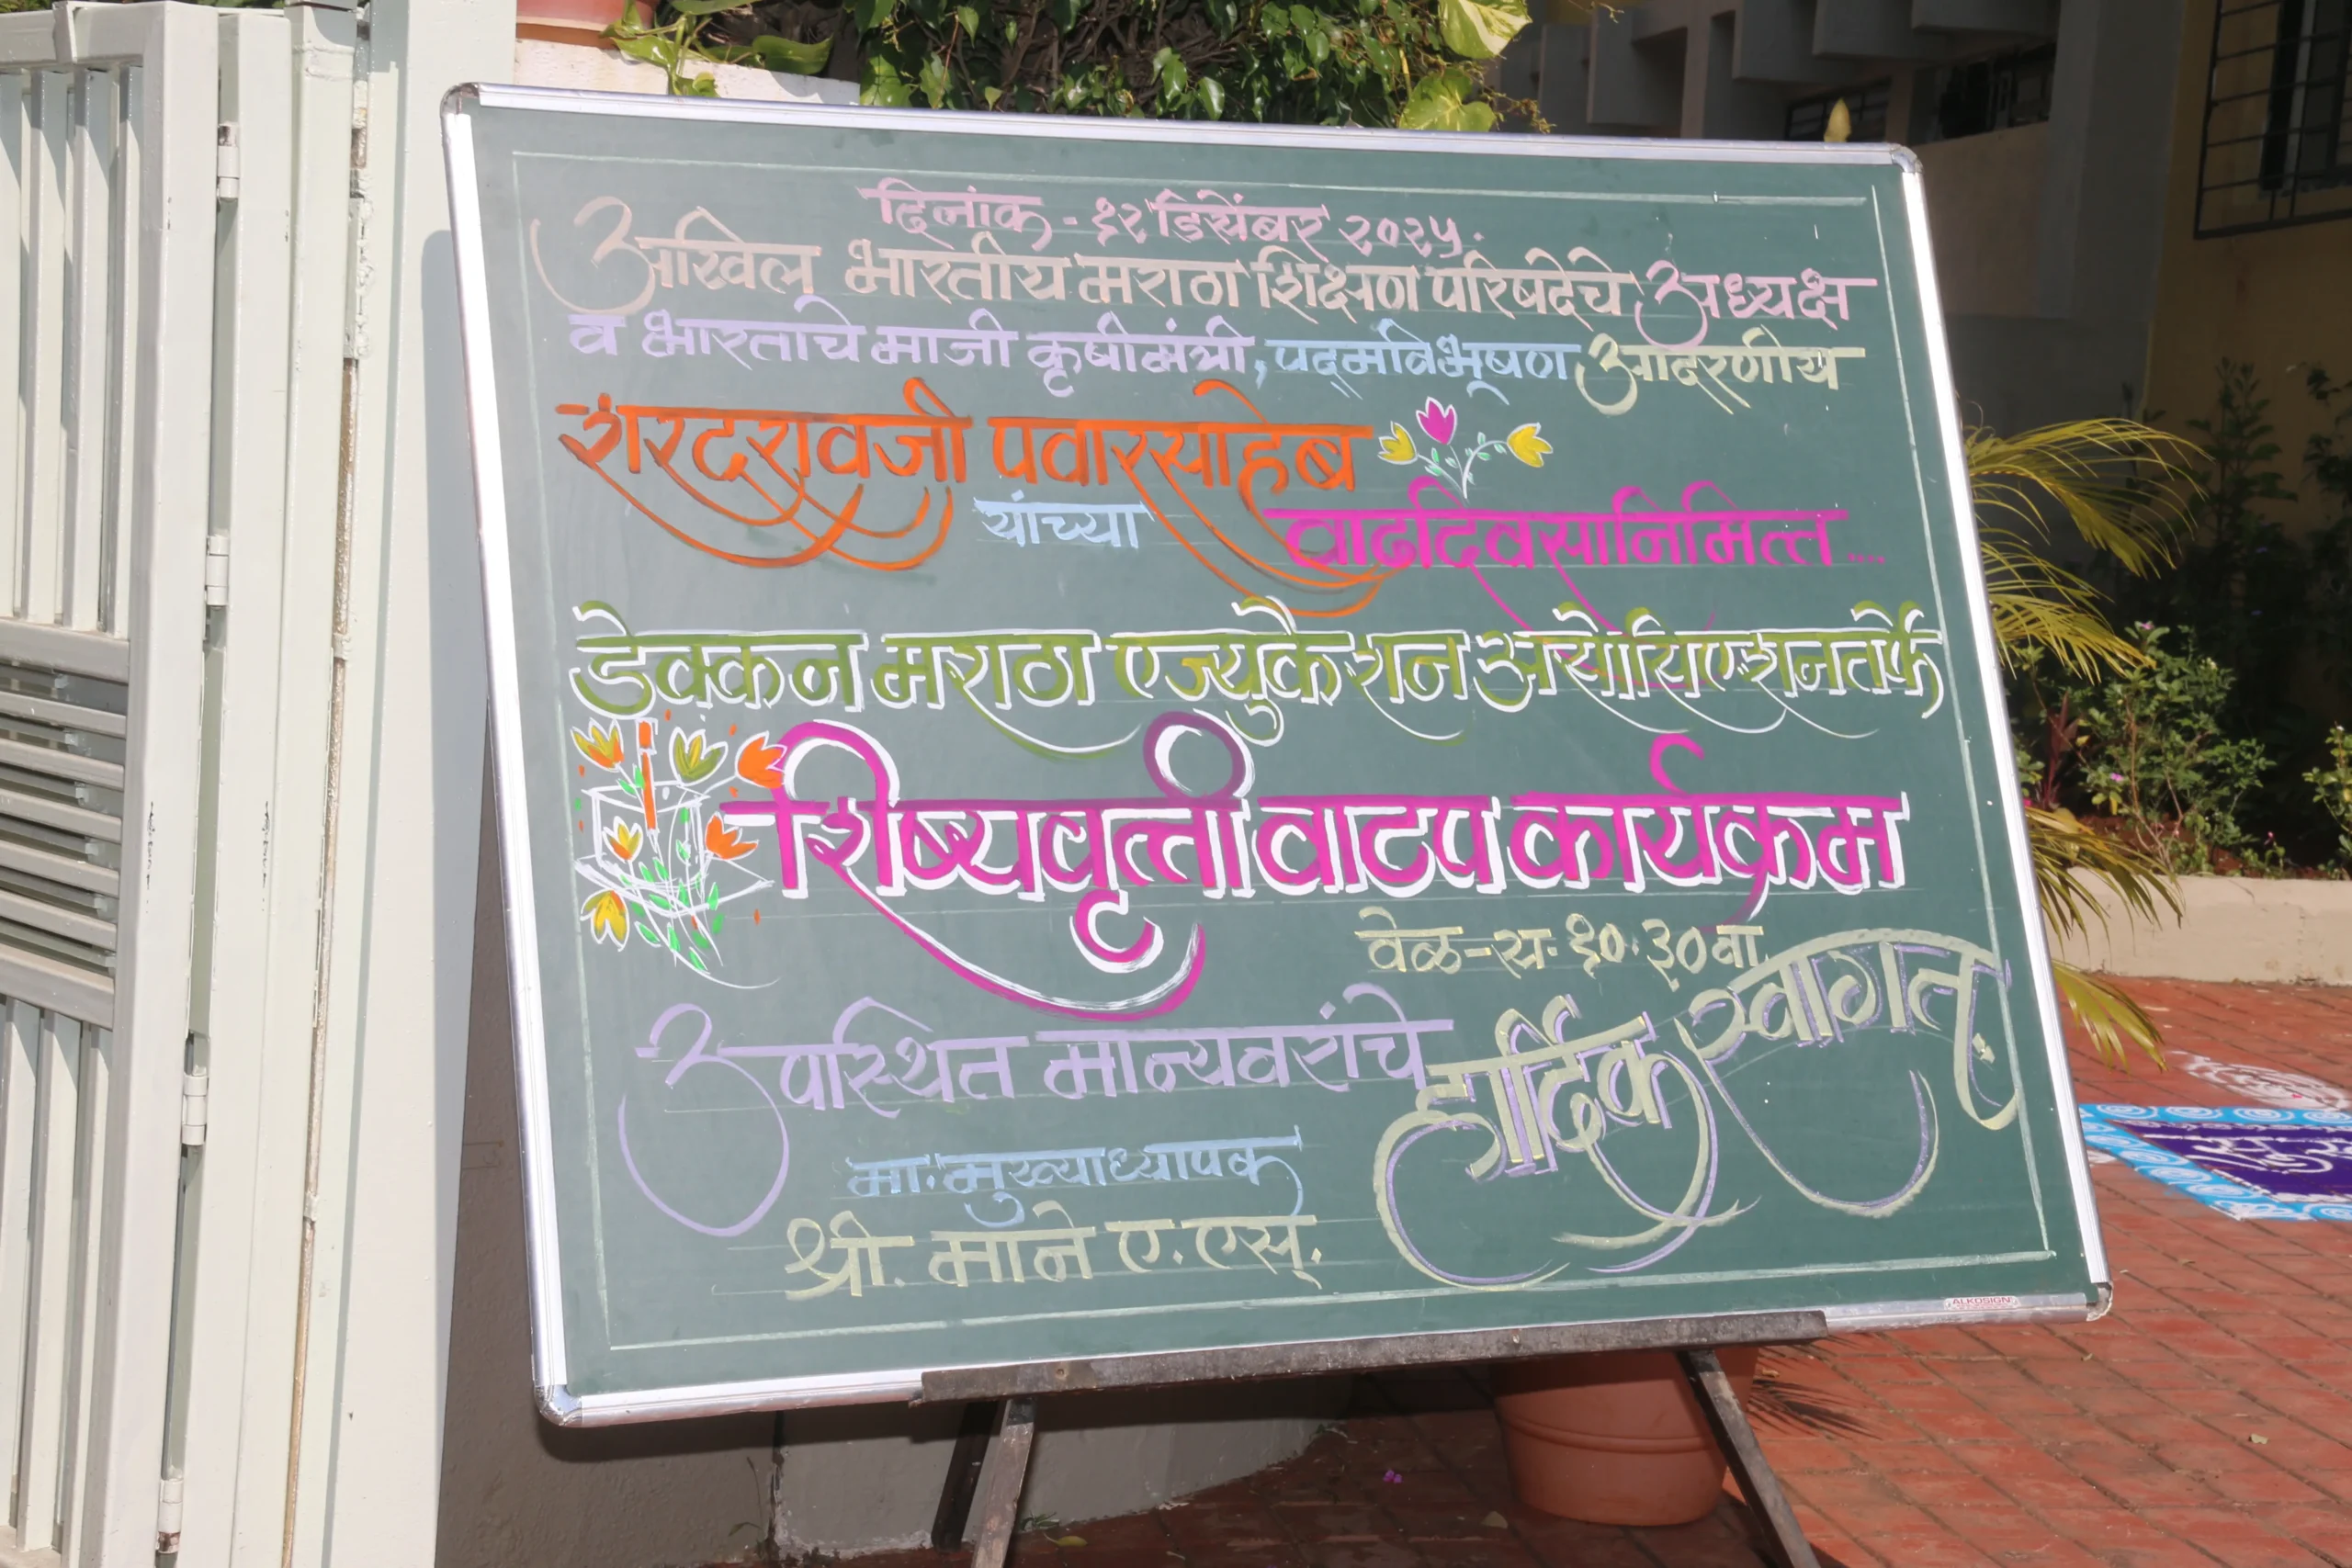 दिनांक - १२ डिसेंबर २०२५.
अखिल भारतीय मराठा शिक्षण परिषदेचे अध्यक्ष
व भारताचे माजी कृषीमंत्री, पद्मविभूषण आदरणीय
शरदरावजी पवारसाहेब
यांच्या वाढदिवसानिमित्त....
डेक्कन मराठा एज्युकेशन असोसिएशनतर्फे
शिष्यवृत्ती वाटप कार्यक्रम
वेळ-स. १०.३० वा.
उपस्थित मान्यवरांचे हार्दिक स्वागत.
मा. मुख्याध्यापक
श्री. माने ए. एस्.
ALKOSIGN